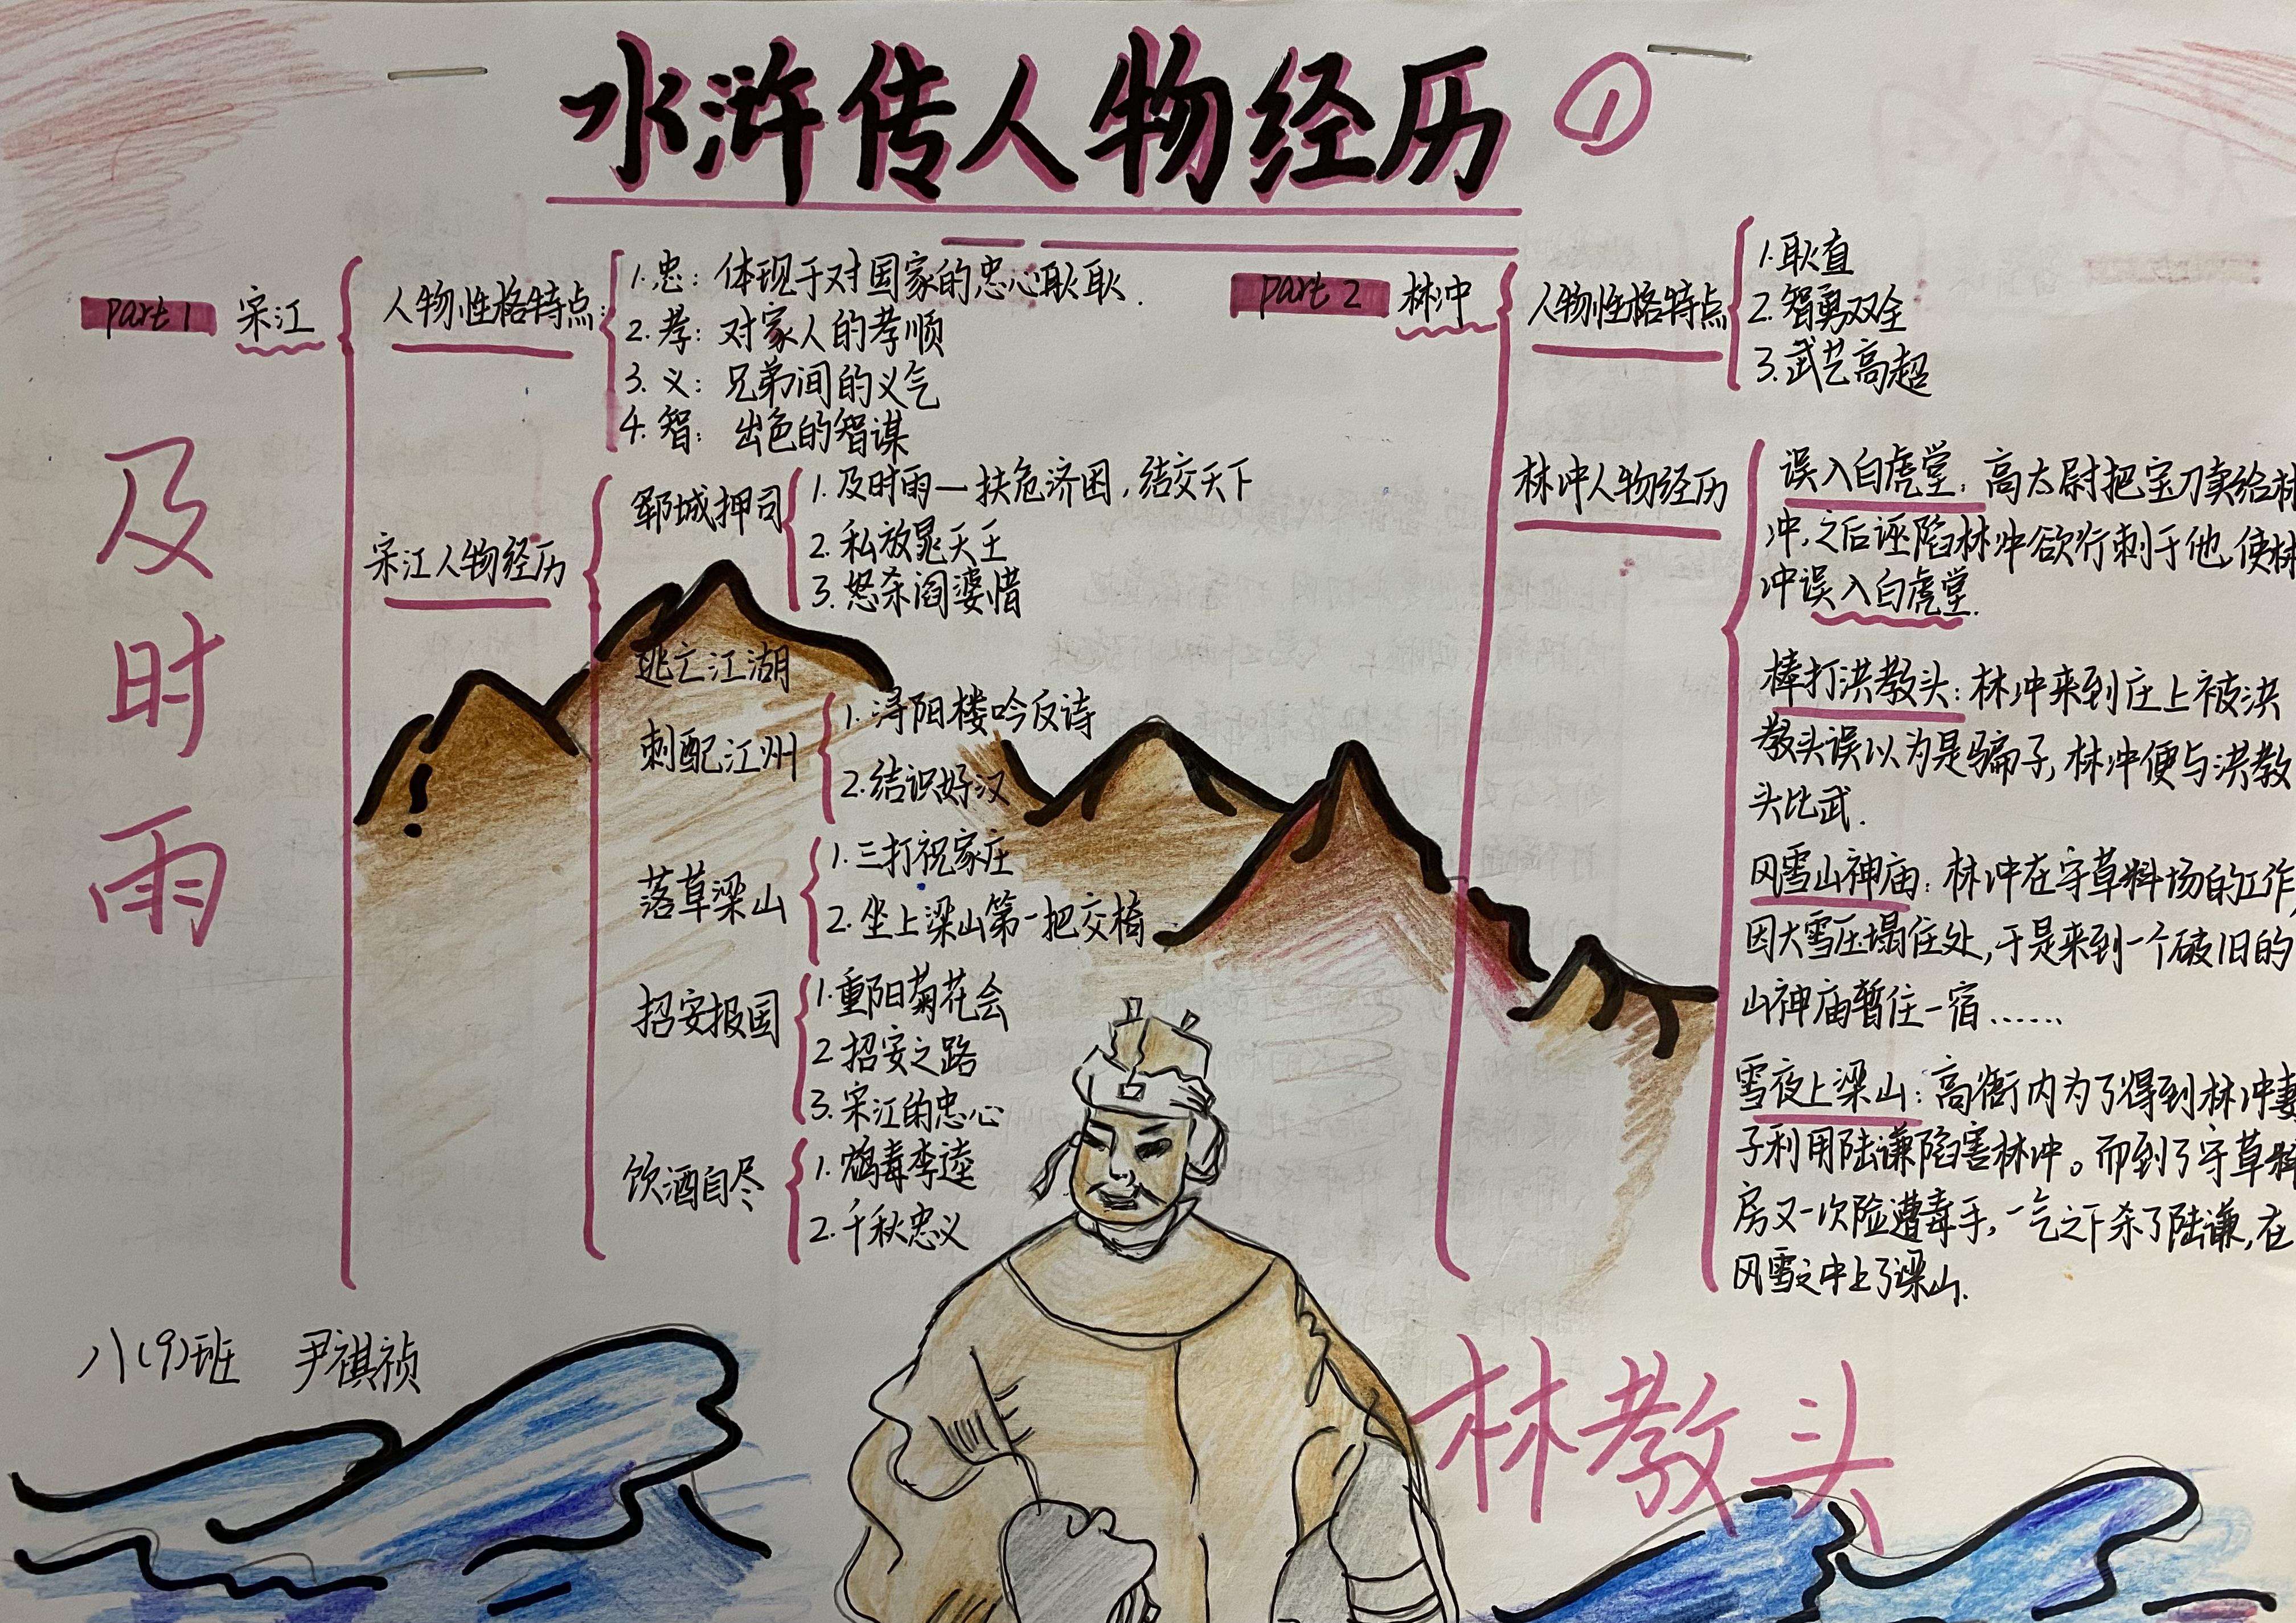 水浒传人物经历 ①
part 1 宋江
人物性格特点:
1.忠: 体现于对国家的忠心耿耿.
2.孝: 对家人的孝顺
3.义: 兄弟间的义气
4.智: 出色的智谋
宋江人物经历
郓城押司
1.及时雨—扶危济困,结交天下
2.私放晁天王
3.怒杀阎婆惜
逃亡江湖
刺配江州
1.浔阳楼吟反诗
2.结识好汉
落草梁山
1.三打祝家庄
2.坐上梁山第一把交椅
招安报国
1.重阳菊花会
2.招安之路
3.宋江的忠心
饮酒自尽
1.鸩毒李逵
2.千秋忠义
及时雨
part 2 林冲
人物性格特点
1.耿直
2.智勇双全
3.武艺高超
林冲人物经历
误入白虎堂: 高太尉把宝刀卖给林
冲,之后诬陷林冲欲行刺于他,使林
冲误入白虎堂.
棒打洪教头: 林冲来到庄上被洪
教头误以为是骗子,林冲便与洪教
头比武.
风雪山神庙: 林冲在守草料场的工作,
因大雪压塌住处,于是来到一个破旧的
山神庙暂住一宿……
雪夜上梁山: 高衙内为了得到林冲妻
子利用陆谦陷害林冲。而到了守草料
房又一次险遭毒手,一气之下杀了陆谦,在
风雪之中上了梁山.
八(9)班 尹祺祯
林教头